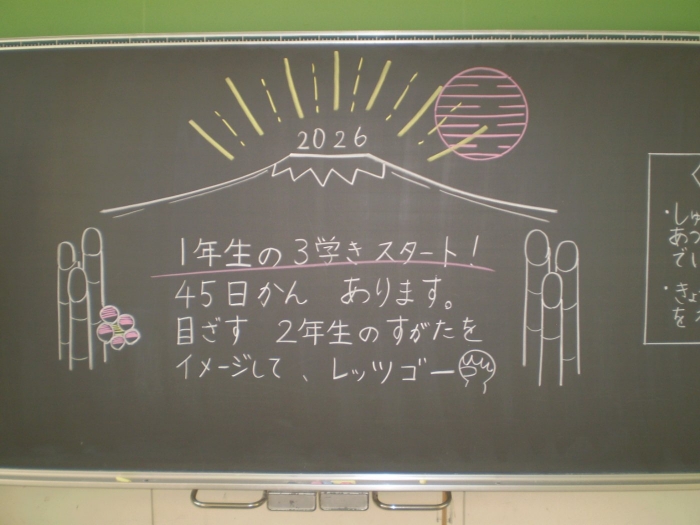 2026
1年生の3学きスタート!
45日かん あります。
目ざす 2年生のすがたを
イメージして、レッツゴー
・しゅ
あつ
でい
・きょ
を